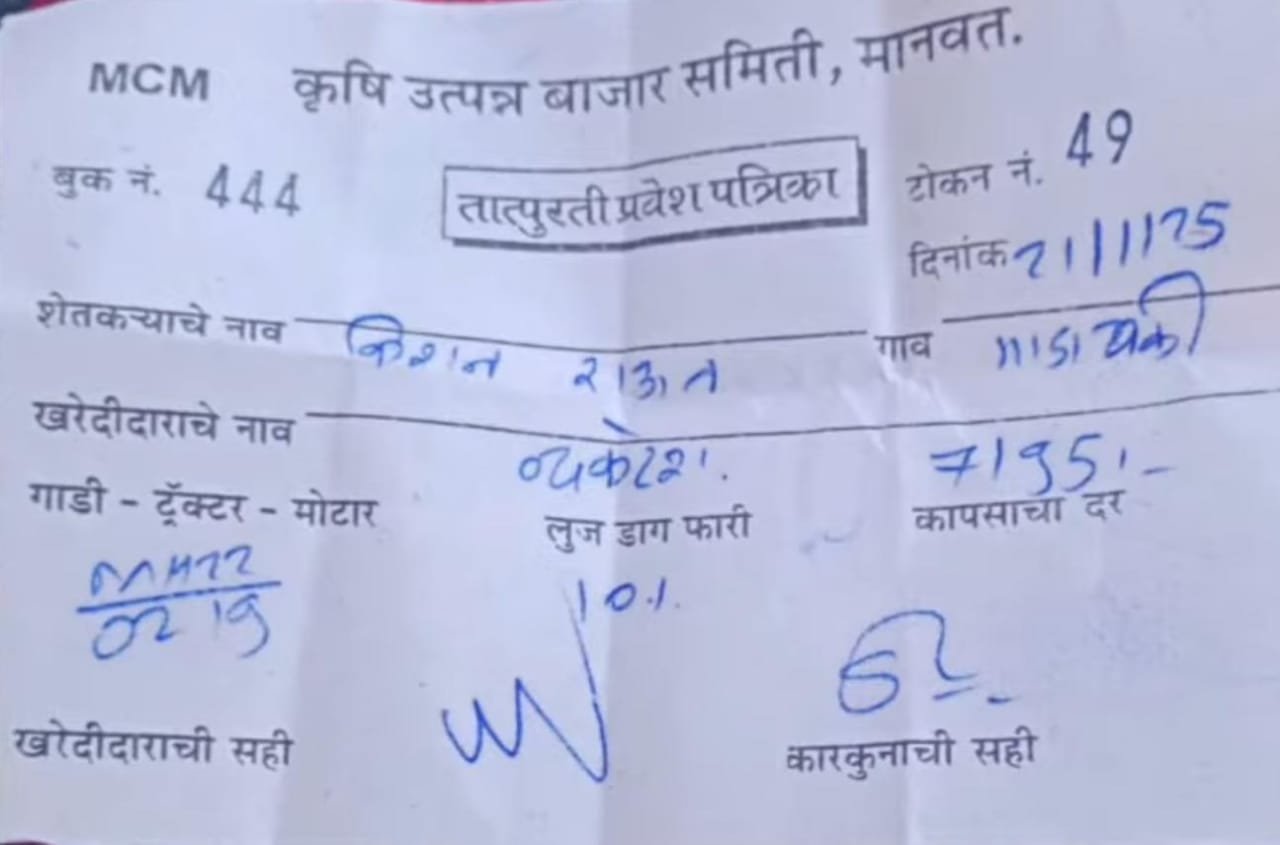 MCM कृषि उत्पन्न बाजार समिती, मानवत.
बुक नं. 444 तात्पुरती प्रवेश पत्रिका टोकन नं. 49
दिनांक 21/1/25
शेतकऱ्याचे नाव किशन राऊत गाव
खरेदीदाराचे नाव व्यकंटेश. 7195/-
गाडी - ट्रॅक्टर - मोटार लुज डाग फारी कापसाचा दर
MH22
0219
खरेदीदाराची सही कारकुनाची सही